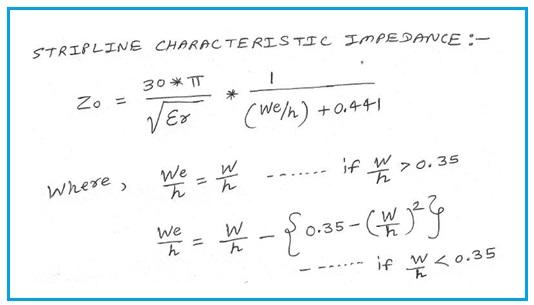 STRIPLINE CHARACTERISTIC IMPEDANCE :-
Zo = 30 * π / √εr * 1 / (We/h) + 0.441
Where, We/h = W/h ------- if W/h > 0.35
We/h = W/h - {0.35 - (W/h)²}
------- if W/h < 0.35